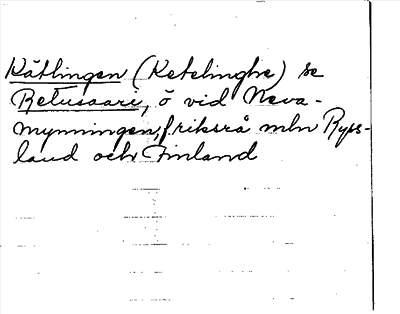 Kätlingen (Ketelinghe) se
Retusaari, ö vid Neva-
mynningen, f riksrå mln Ryss-
land och Finland